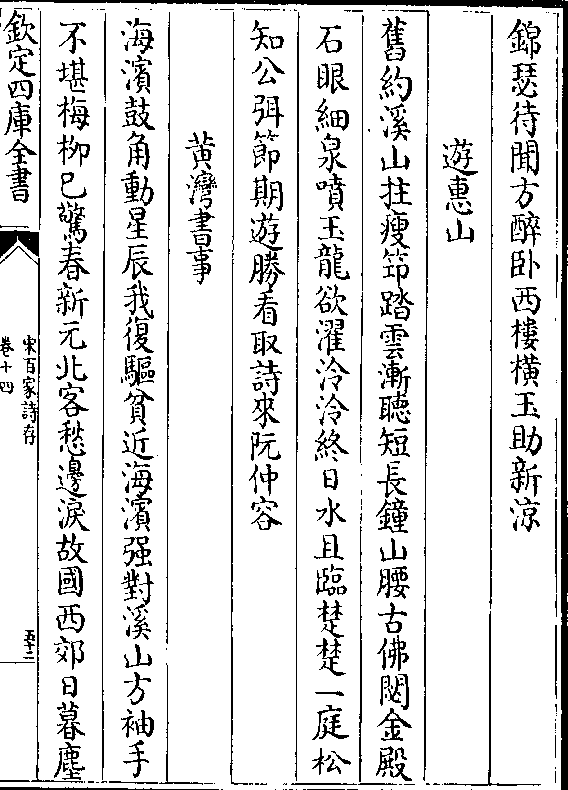 錦瑟待聞方醉卧西樓橫玉助新涼
遊惠山
舊約溪山拄瘦筇踏雲漸聽短長鐘山腰古佛閟金殿
石眼細泉噴玉龍欲濯泠泠終日水且臨楚楚一庭松
知公弭節期遊勝看取詩來阮仲容
黄灣書事
海濱鼓角動星辰我復驅貧近海濱强對溪山方袖手
不堪梅柳已驚春新元北客愁邊淚故國西郊日暮塵
欽定四庫全書
宋百家詩存
卷十四
五十二